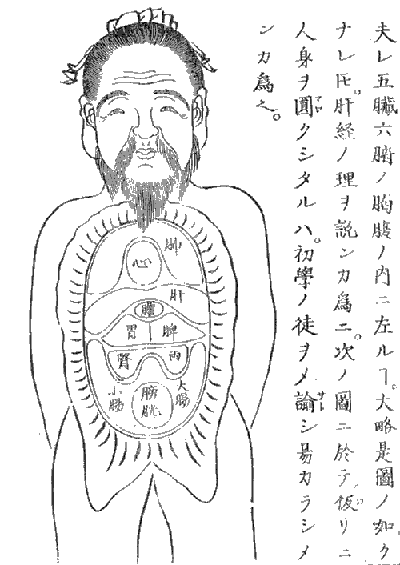 夫レ五臓六腑ノ胸腹ノ内ニ在ルヿ。大略是圖ノ如ク
ナレ𪜈。肝経ノ理ヲ説ンカ為ニ。次ノ圖ニ於テ。仮リニ
人身ヲ圓クシタルハ。初學ノ徒ヲメ諭シ易カラシメ
ンカ為也。
肺
心
肝
膽
脾
胃
両
腎
大腸
膀胱
小腸